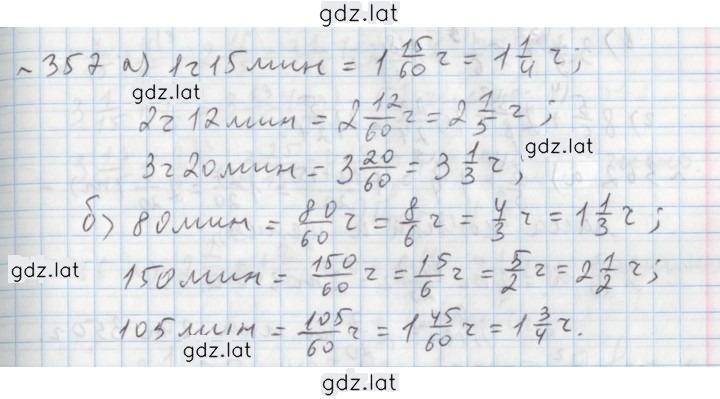 gdz.lat
~ 357 а) 1ч 15 мин = 1 15/60 ч = 1 1/4 ч;
gdz.lat
2ч 12 мин = 2 12/60 ч = 2 1/5 ч;
gdz.lat
3ч 20 мин = 3 20/60 = 3 1/3 ч;
б) 80 мин = 80/60 ч = 8/6 ч = 4/3 ч = 1 1/3 ч;
gdz.lat
150 мин = 150/60 ч = 15/6 ч = 5/2 ч = 2 1/2 ч;
105 мин = 105/60 ч = 1 45/60 ч = 1 3/4 ч.
gdz.lat
gdz.lat